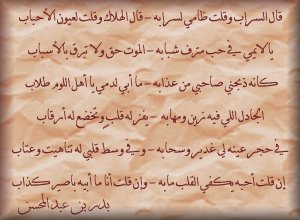 قال السراب وقلت ظامي لسرابه - قال الهلاك وقلت لعيون الأحباب
يالايمي في حب مترف شبابه - الموت حق ولا تبرق بالأسباب
كانه ذبحني صاحبي من عذابه - ما أبي لدمي يا أهل اللوم طلاب
الجادل اللي فيه زين ومهابه - يفز له قلبي وتخضع له أرقاب
في حجر عينه لي غدير وسحابه - وفي وسط قلبي له تناهيت وعتاب
إن قلت أحبه يكفي القلب مابه - وإن قلت أنا ما أبيه باصير كذاب
بدر بن عبد المحسن